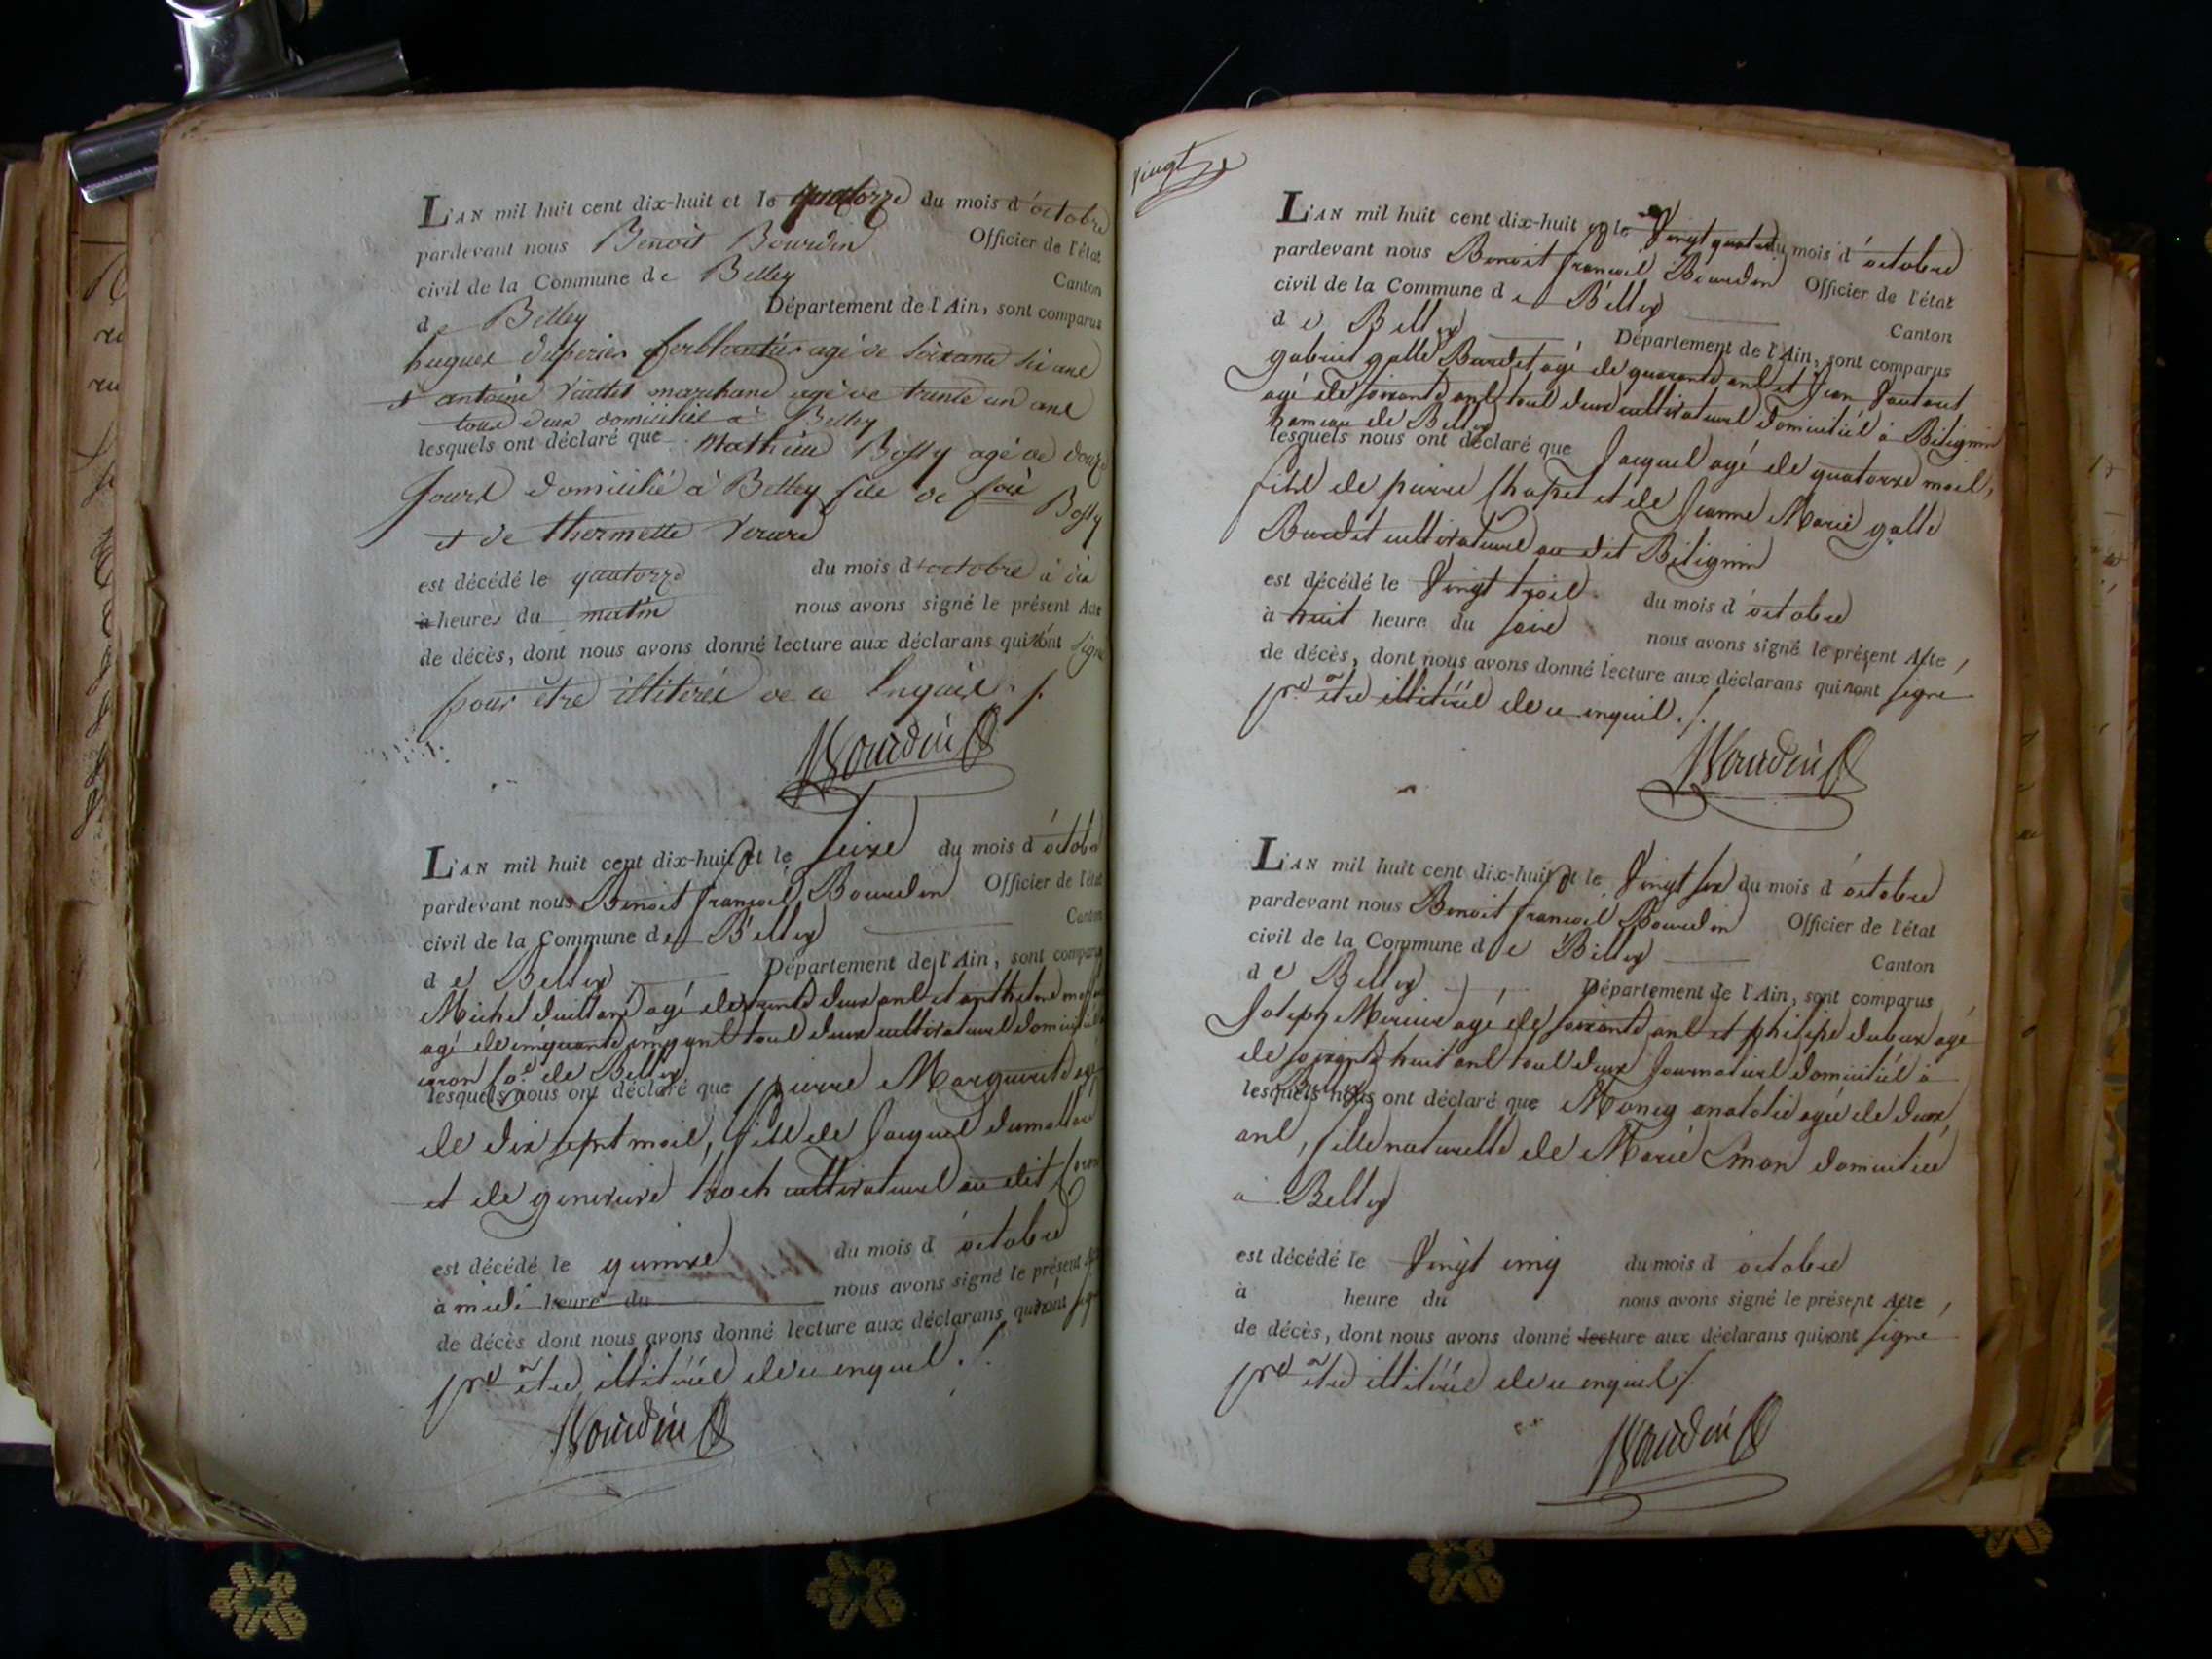 L'AN mil huit cent dix-huit et le quatorze du mois d'octobre
pardevant nous Benoit Bourdin Officier de l'état
civil de la Commune de Belley Canton
de Belley Département de l'Ain, sont comparus
hugues ferblantier agé de soixante six ans
et antoine marchand agé de trente un ans
tous deux domiciliés à Belley
lesquels ont déclaré que Mathieu Bossy agé de douze
jours domicilié à Belley fils de Bossy
et de thermette
est décédé le quatorze du mois d'octobre à dix
à heures du matin nous avons signé le présent Acte
de décès, dont nous avons donné lecture aux déclarans qui n'ont signé
pour être illitérés de ce enquis ./.
Bourdin
L'AN mil huit cent dix-huit et le seize du mois d'octobre
pardevant nous Benoit françois Bourdin Officier de l'état
civil de la Commune de Belley Canton
de Belley Département de l'Ain, sont comparus
Michel agé de trente deux ans et
agé de cinquante cinq ans tous deux cultivateurs domiciliés
de Belley
lesquels nous ont déclaré que pierre Marguerite agé
de dix sept mois, fils de Jacques
et de genevieve cultivateurs au dit
est décédé le quinze du mois d'octobre
à midi heure du nous avons signé le présent Acte
de décès dont nous avons donné lecture aux déclarans qui n'ont signé
pre être illitérés de ce enquis ./.
Bourdin
vingt
L'AN mil huit cent dix-huit et le Vingt quatre du mois d'octobre
pardevant nous Benoit françois Bourdin Officier de l'état
civil de la Commune de Belley Canton
de Belley Département de l'Ain, sont comparus
gabriel gallet Burdet agé de quarante ans et Jean
agé de soixante ans tous deux cultivateurs domiciliés à Bitignin
hameau de Belley
lesquels nous ont déclaré que Jacques agé de quatorze mois,
fils de pierre Chapet et de Jeanne Marie gallet
Burdet cultivateurs au dit Bitignin
est décédé le Vingt trois du mois d'octobre
à huit heure du soire nous avons signé le présent Acte,
de décès, dont nous avons donné lecture aux déclarans qui n'ont signé
pre être illitérés de ce enquis ./.
Bourdin
L'AN mil huit cent dix-huit et le Vingt six du mois d'octobre
pardevant nous Benoit françois Bourdin Officier de l'état
civil de la Commune de Belley Canton
de Belley Département de l'Ain, sont comparus
Joseph Mercier agé de soixante ans et philipe agé
de soixante huit ans tous deux Journaliers domiciliés à
Belley
lesquels nous ont déclaré que anatolie agée de deux
ans, fille naturelle de Marie domiciliée
à Belley
est décédé le Vingt cinq du mois d'octobre
à heure du nous avons signé le présent Acte,
de décès, dont nous avons donné lecture aux déclarans qui n'ont signé
pre être illitérés de ce enquis ./.
Bourdin